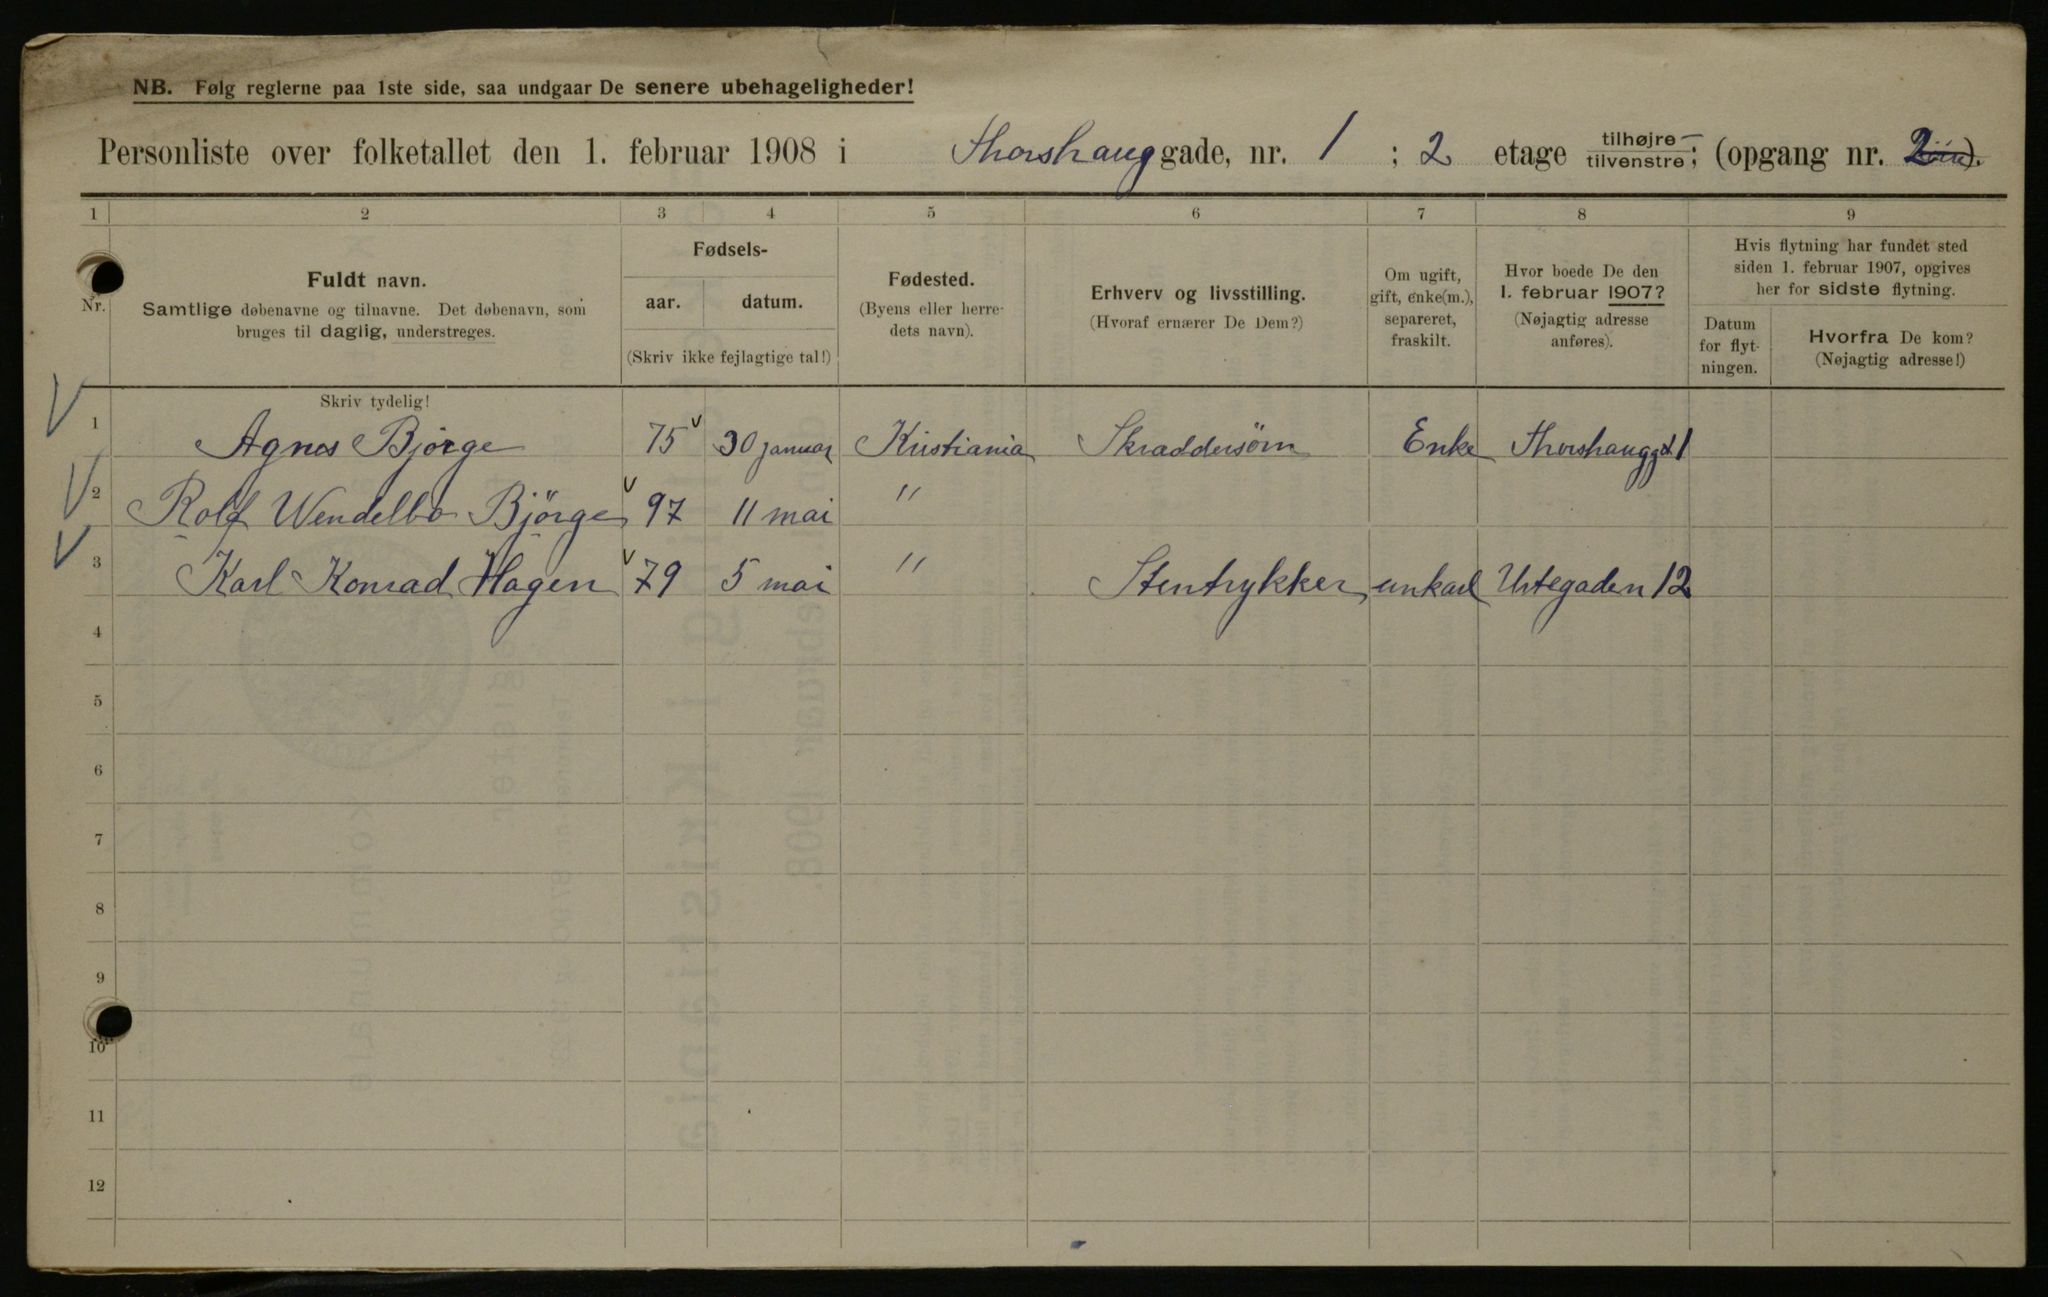 NB. Følg reglerne paa 1ste side, saa undgaar De senere ubehageligheder!
Personliste over folketallet den 1. februar 1908 i Thorshauggade, nr. 1 ; 2 etage tilhøjre tilvenstre; (opgang nr. 2).
1 2 3 4 5 6 7 8 9
Nr.
Fuldt navn.
Samtlige døbenavne og tilnavne. Det døbenavn, som
bruges til daglig, understreges.
Fødsels-
aar. datum.
(Skriv ikke fejlagtige tal!)
Fødested.
(Byens eller herre-
dets navn).
Erhverv og livsstilling.
(Hvoraf ernærer De Dem?)
Om ugift,
gift, enke(m.),
separeret,
fraskilt.
Hvor boede De den
1. februar 1907?
(Nøjagtig adresse
anføres).
Hvis flytning har fundet sted
siden 1. februar 1907, opgives
her for sidste flytning.
Datum
for flyt-
ningen.
Hvorfra De kom?
(Nøjagtig adresse!)
Skriv tydelig!
1 Agnes Bjørge 75 30 januar Kristiania Skraddersöm Enke Thorshauggt 1
2 Rolf Wendelbo Björge 97 11 mai "
3 Karl Konrad Hagen 79 5 mai " Stentrykker unkarl Urtegaden 12
4
5
6
7
8
9
10
11
12